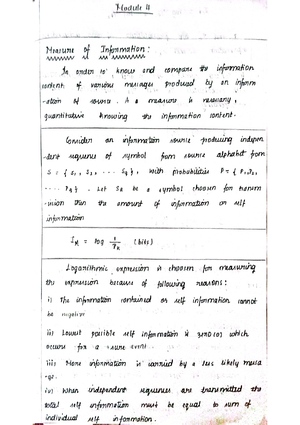 Module 4
Measure of Information:
In order to know and compare the information
content of various messages produced by an inform
-ation of source. A measure is necessary,
quantitative knowing the information content.
Consider an information source producing indepen
-dent sequence of symbol from source alphabet from
S = { S1, S2, .... Sq }, with probabilities P = { P1, P2,
.... Pq } . Let Sk be a symbol choosen for transm
-ission then the amount of information or self
information
Ik = log 1/Pk (bits)
Logarithmic expression is choosen for measuring
the expression because of following reasons:
i) The information contained or self information cannot
be negative
ii) Lowest possible self information is zero which
occurs for a sure event.
iii) More information is carried by a less likely messa
-ge.
iv) When independent sequences are transmitted the
total self information must be equal to sum of
individual self information.